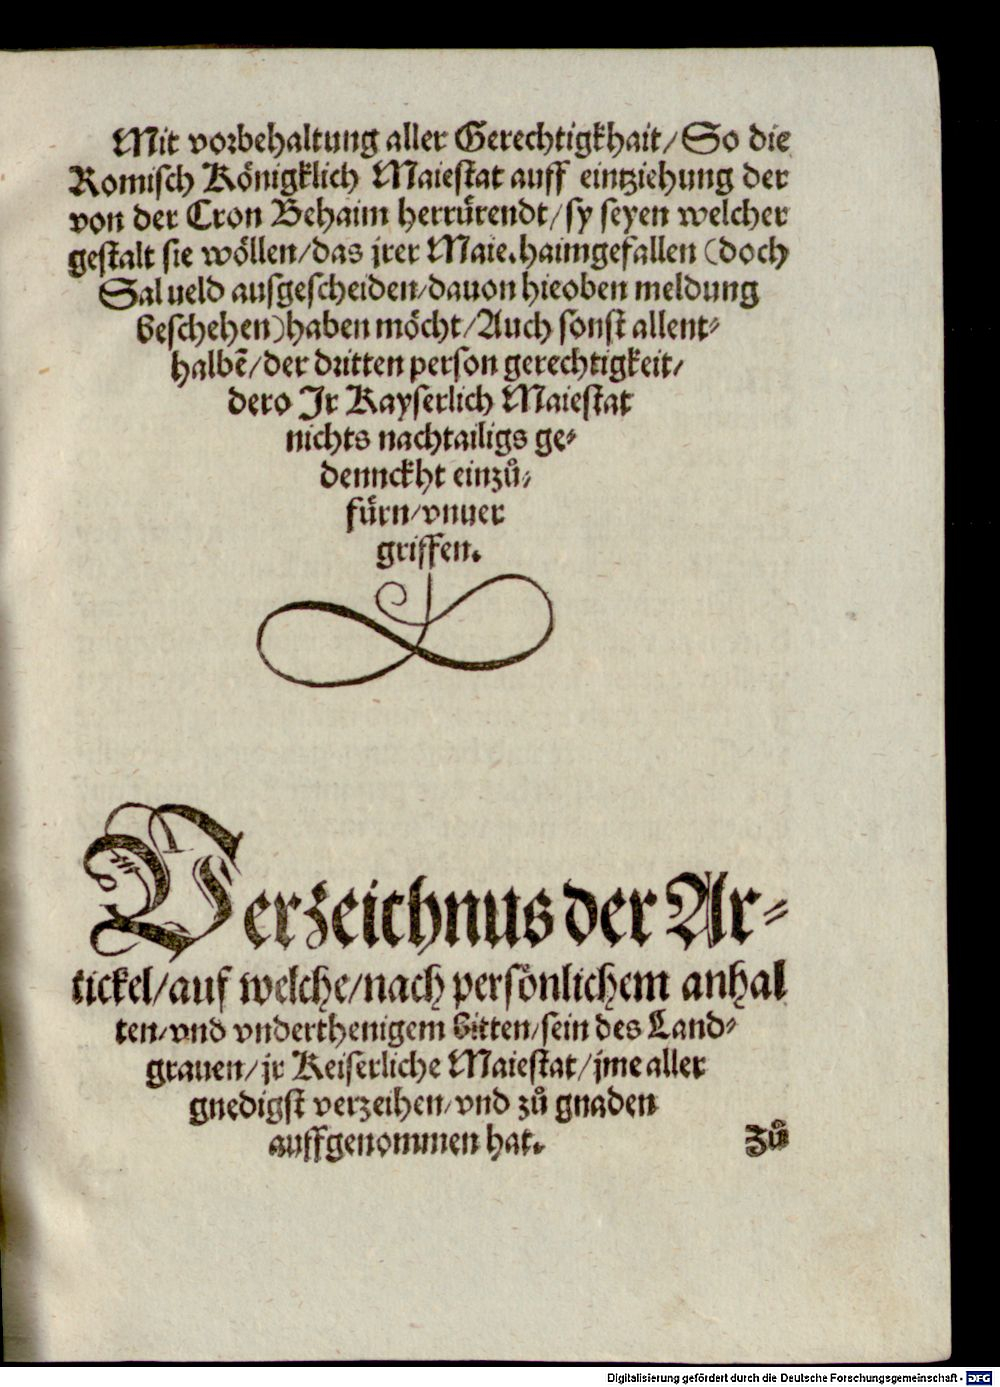 Mit vorbehaltung aller Gerechtigkhait/ So die
Romisch Königklich Maiestat auff eintziehung der
von der Cron Behaim herruͤrendt/ sy seyen welcher
gestalt sie woͤllen/ das jrer Maie. haimgefallen (doch
Salueld ausgescheiden/ dauon hieoben meldung
beschehen) haben moͤcht/ Auch sonst allent⸗
halbē/ der dritten person gerechtigkeit/
dero Jr Kayserlich Maiestat
nichts nachtailigs ge⸗
dennckht einzuͦ⸗
fuͤrn/ vnuer
griffen.
Verzeichnus der Ar⸗
tickel/ auf welche/ nach persoͤnlichem anhal
ten/ vnd vnderthenigem bitten/ sein des Land⸗
grauen/ jr Keiserliche Maiestat/ jme aller
gnedigst verzeihen/ vnd zuͦ gnaden
auffgenommen hat.
Zuͦ
Digitalisierung gefördert durch die Deutsche Forschungsgemeinschaft - DFG